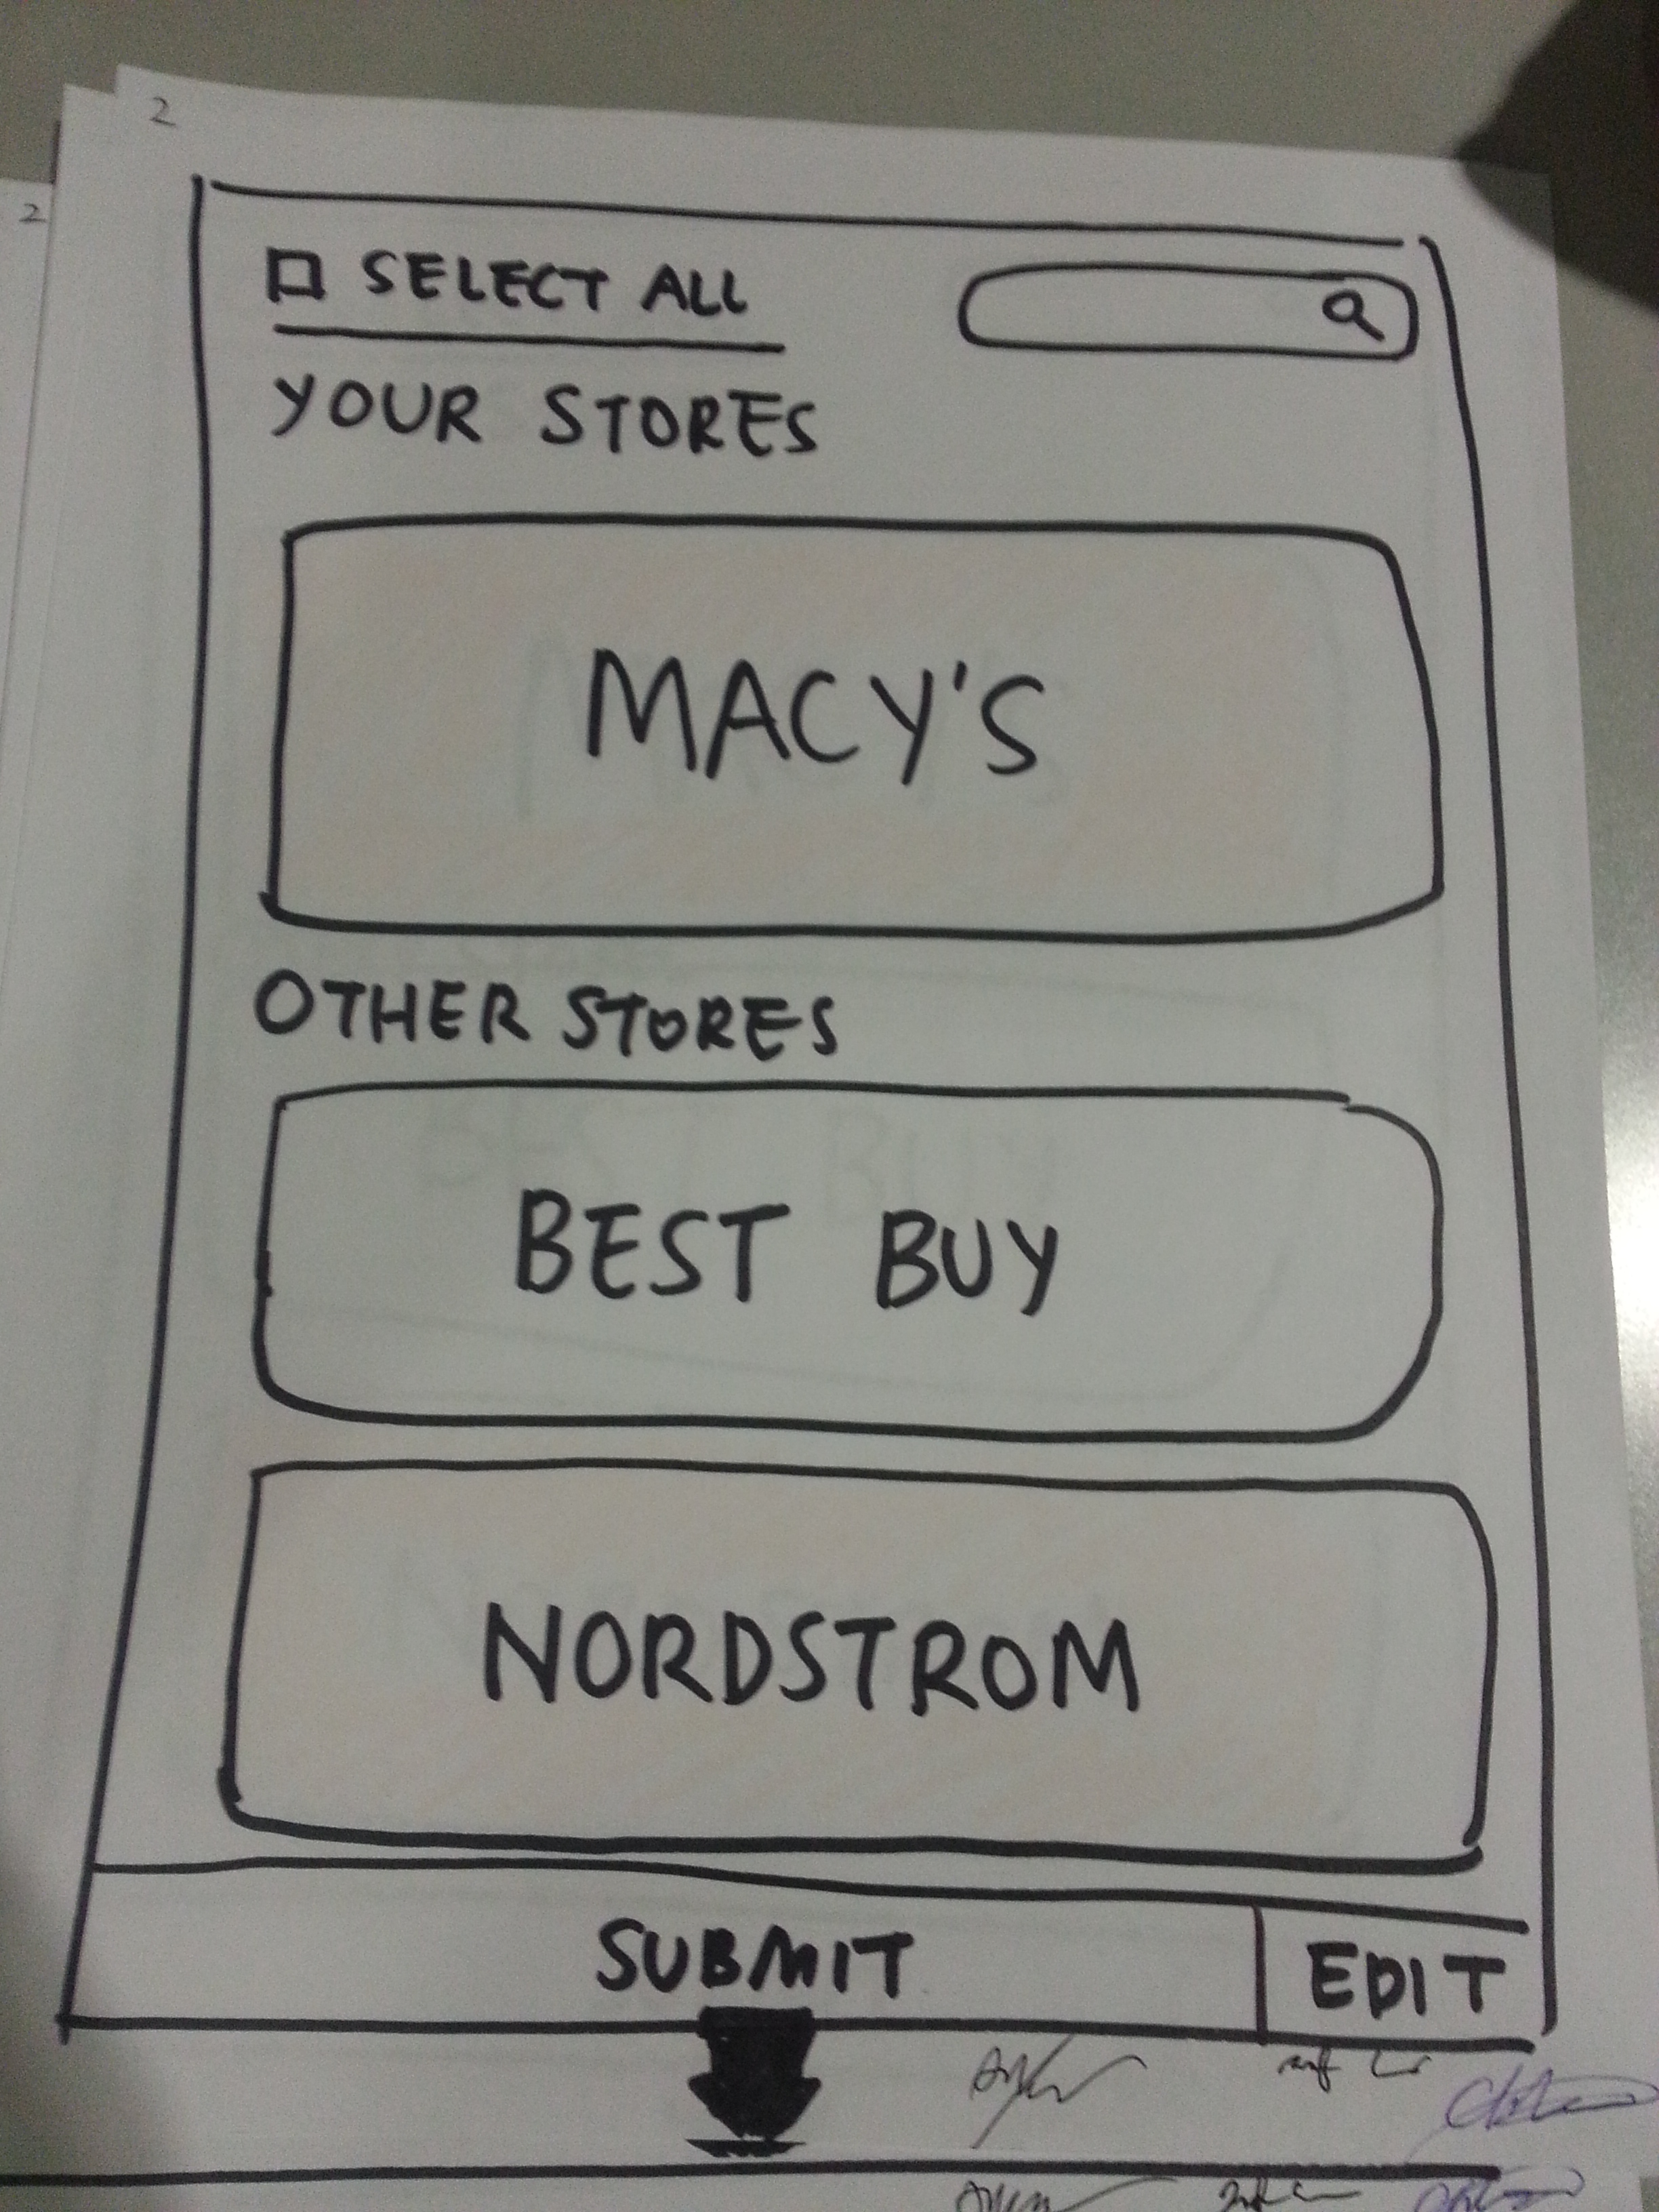 2
2
SELECT ALL
YOUR STORES
MACY'S
OTHER STORES
BEST BUY
NORDSTROM
SUBMIT
EDIT